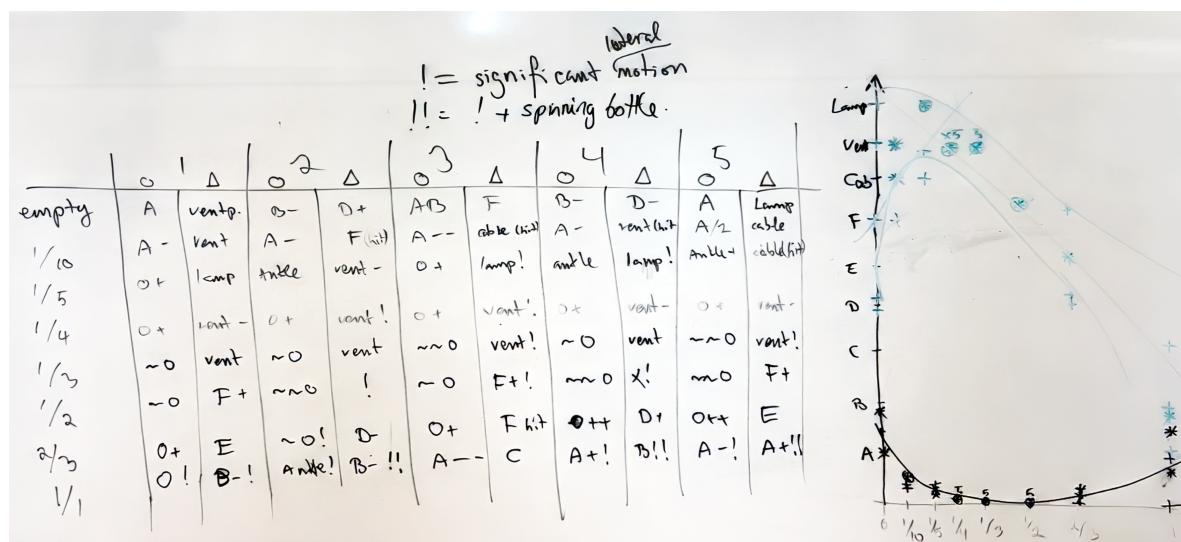 lateral
! = significant motion
!! = ! + spinning bottle.
1 2 3 4 5
O Δ O Δ O Δ O Δ O Δ
empty A ventp. B- D+ AB F B- D- A Lamp
1/10 A- vent A- F(hit) A-- cable (hit) A- vent(hit A/2 cable
1/5 O+ lamp Ankle vent- O+ lamp! ankle lamp! Ankle+ cable(hit)
1/4 O+ vent- O+ vent! O+ vent! O+ vent- O+ vent-
1/3 ~O vent ~O vent ~~O vent! ~O vent ~~O vent!
1/2 ~O F+ ~~O ! ~O F+! ~~O X! ~~O F+
2/3 O+ E ~O! D- O+ F hit O++ D+ O++ E
1/1 O! B-! Ankle! B-!! A-- C A+! B!! A-! A+!!
Lamp
Vent x5 3
Cab
F
E
D
C
B
A
5 5 5
0 1/10 1/5 1/4 1/3 1/2 2/3 1